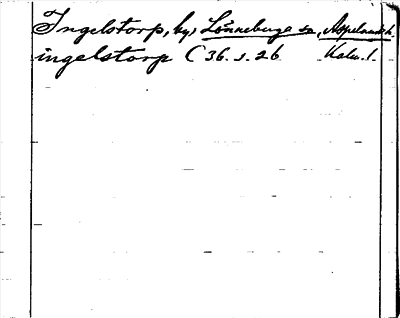 Ingelstorp, by, Lönneberga sn, Aspelands h.
ingelstorp C 36. s. 26 Kalm. l.